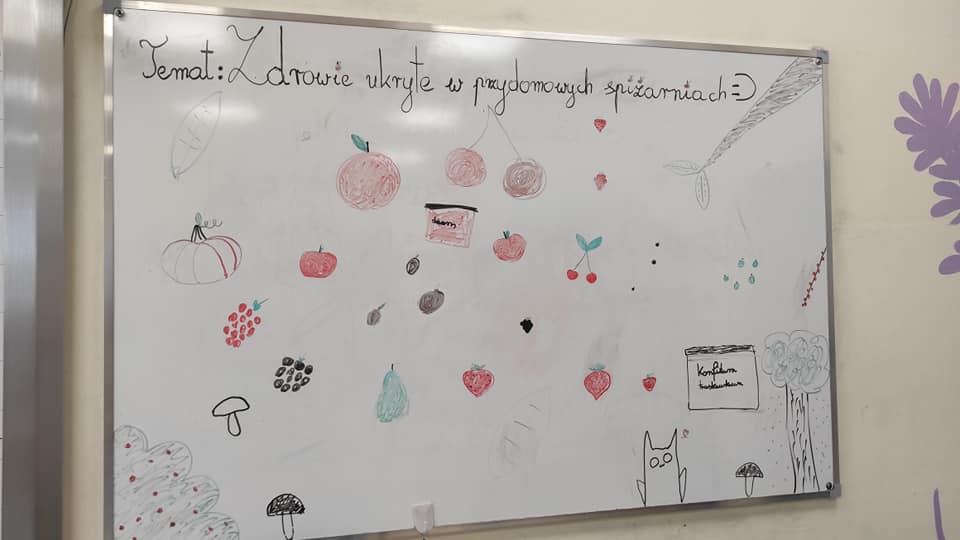 Temat: Zdrowie ukryte w przydomowych spiżarniach =D
Konfitura
truskawkowa